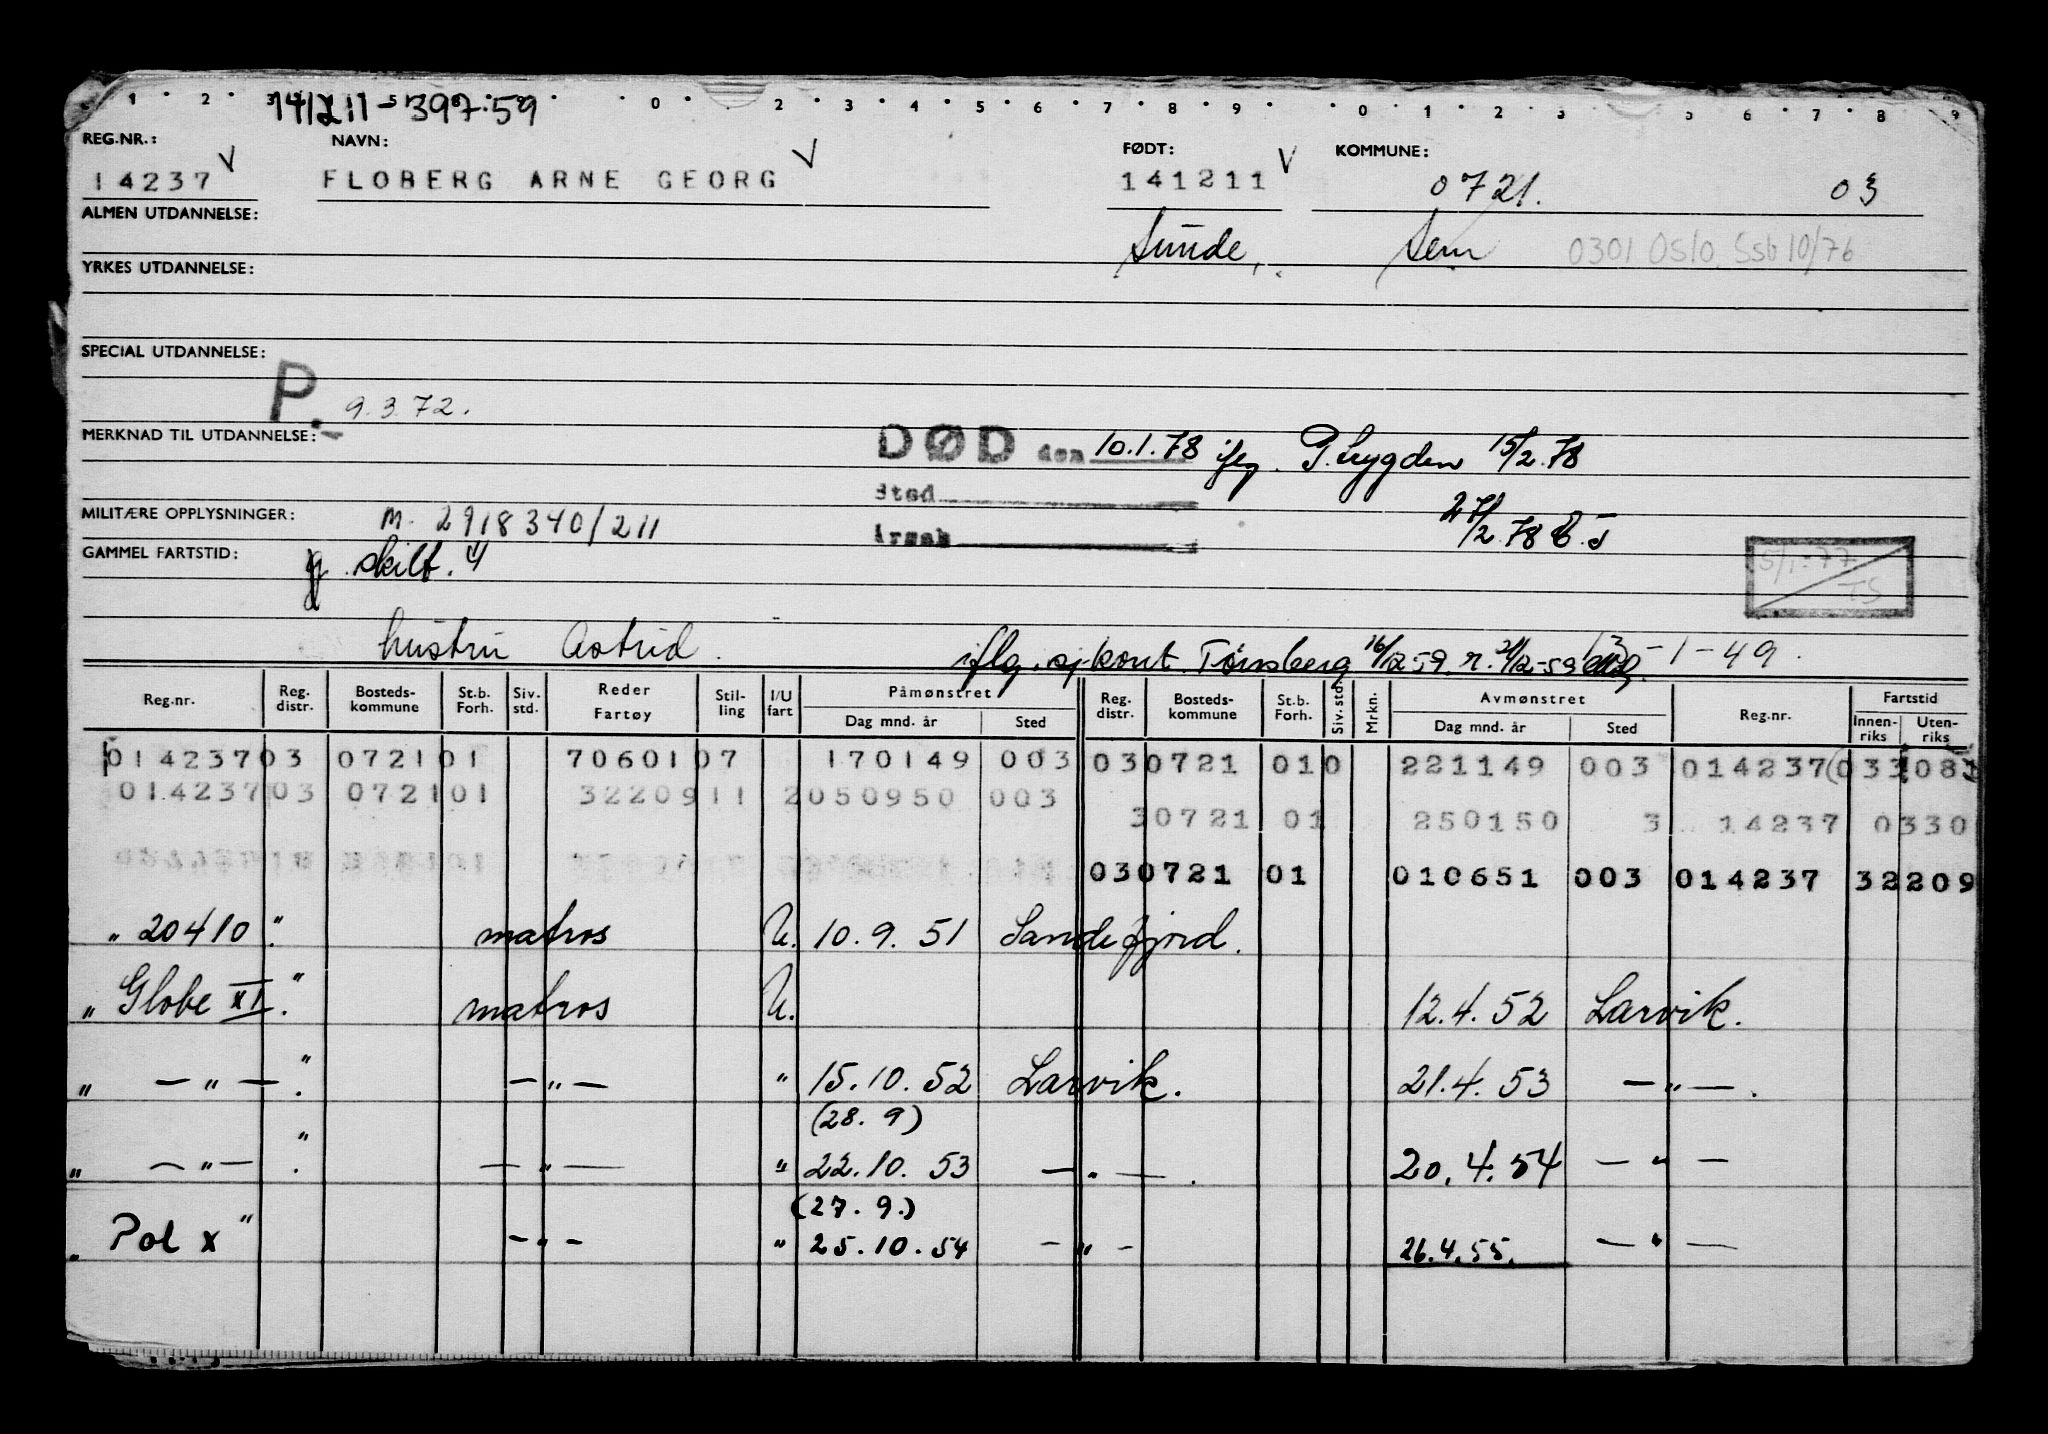 1 2 3 0 2 3 4 5 6 7 8 9 0 1 2 3 5 6 7 8 9
141211-39759
REG.NR.: NAVN: FØDT: KOMMUNE:
14237 V FLOBERG ARNE GEORG V 141211 V 0721. 03
ALMEN UTDANNELSE:
Sunde, Sem 0301 Oslo Ssb 10/76
YRKES UTDANNELSE:
SPECIAL UTDANNELSE:
P. 9.3.72.
MERKNAD TIL UTDANNELSE:
DØD den 10.1.78 ifg. P.trygden 15/2.78
Sted
Årsak
27/2.78
MILITÆRE OPPLYSNINGER: M. 2918340/211
GAMMEL FARTSTID: skilt.
5/1-77 TS
hustru Astrid. iflg. sj.kont. Tønsberg 16/12-59 -1-49.
Reg.nr. Reg. distr. Bosteds-kommune St.b. Forh. Siv. std. Reder Fartøy Stil-ling I/U fart Påmønstret Dag mnd. år Sted Reg. distr. Bosteds-kommune St.b. Forh. Siv. std. Mrkn. Avmønstret Dag mnd. år Sted Reg.nr. Fartstid Innen-riks Uten-riks
014237 03 0721 01 70601 07 170149 003 03 0721 01 0 221149 003 014237 033 081
014237 03 0721 01 32209 11 2 050950 003
3 0721 01 250150 3 14237 0330
03 0721 01 010651 003 014237 32209
" 20410 " matros U. 10.9.51 Sandefjord.
" Globe XI " matros U. 12.4.52 Larvik.
" — " — " — " — " 15.10.52 Larvik. 21.4.53 — " — .
(28.9)
" — " — " — " — " 22.10.53 — " — . 20.4.54 — " —
(27.9.)
" Pol X " — " — " 25.10.54 — " — 26.4.55. — " —